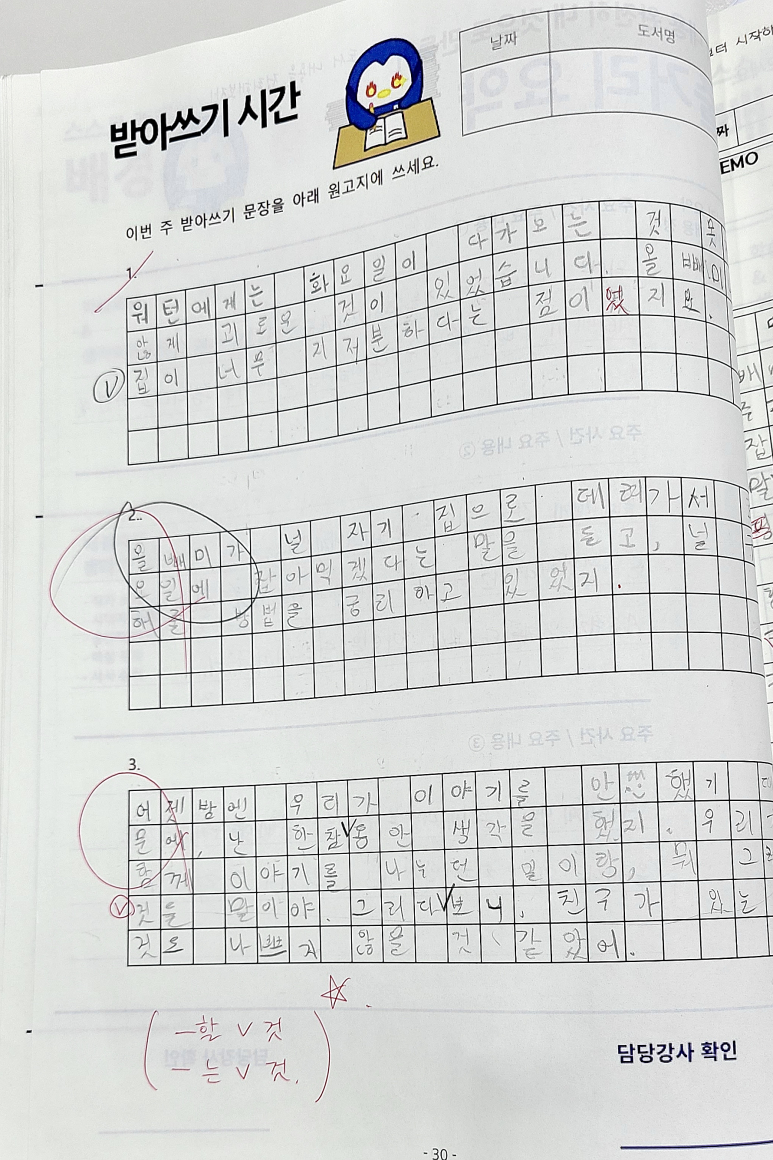 날짜
도서명
받아쓰기 시간
이번 주 받아쓰기 문장을 아래 원고지에 쓰세요.
1.
워턴에게는 화요일이 다가오는 것 못
않게 괴로운 것이 있었습니다. 올빼미
집이 너무 지저분하다는 점이었지요.
2.
올빼미가 널 자기 집으로 데려가서
오일에 잡아먹겠다는 말을 듣고, 널
해를 방법을 궁리하고 있었지.
3.
어젯밤엔 우리가 이야기를 안 했기
문에, 난 한참 동안 생각을 했지. 우리
함께 이야기를 나누던 일이랑, 뭐 그
것들 말이야. 그러다보니, 친구가 있는
것도 나쁘지 않을 것 같았어.
-할 V 것
-는 V 것.
담당강사 확인
- 30 -
EMO